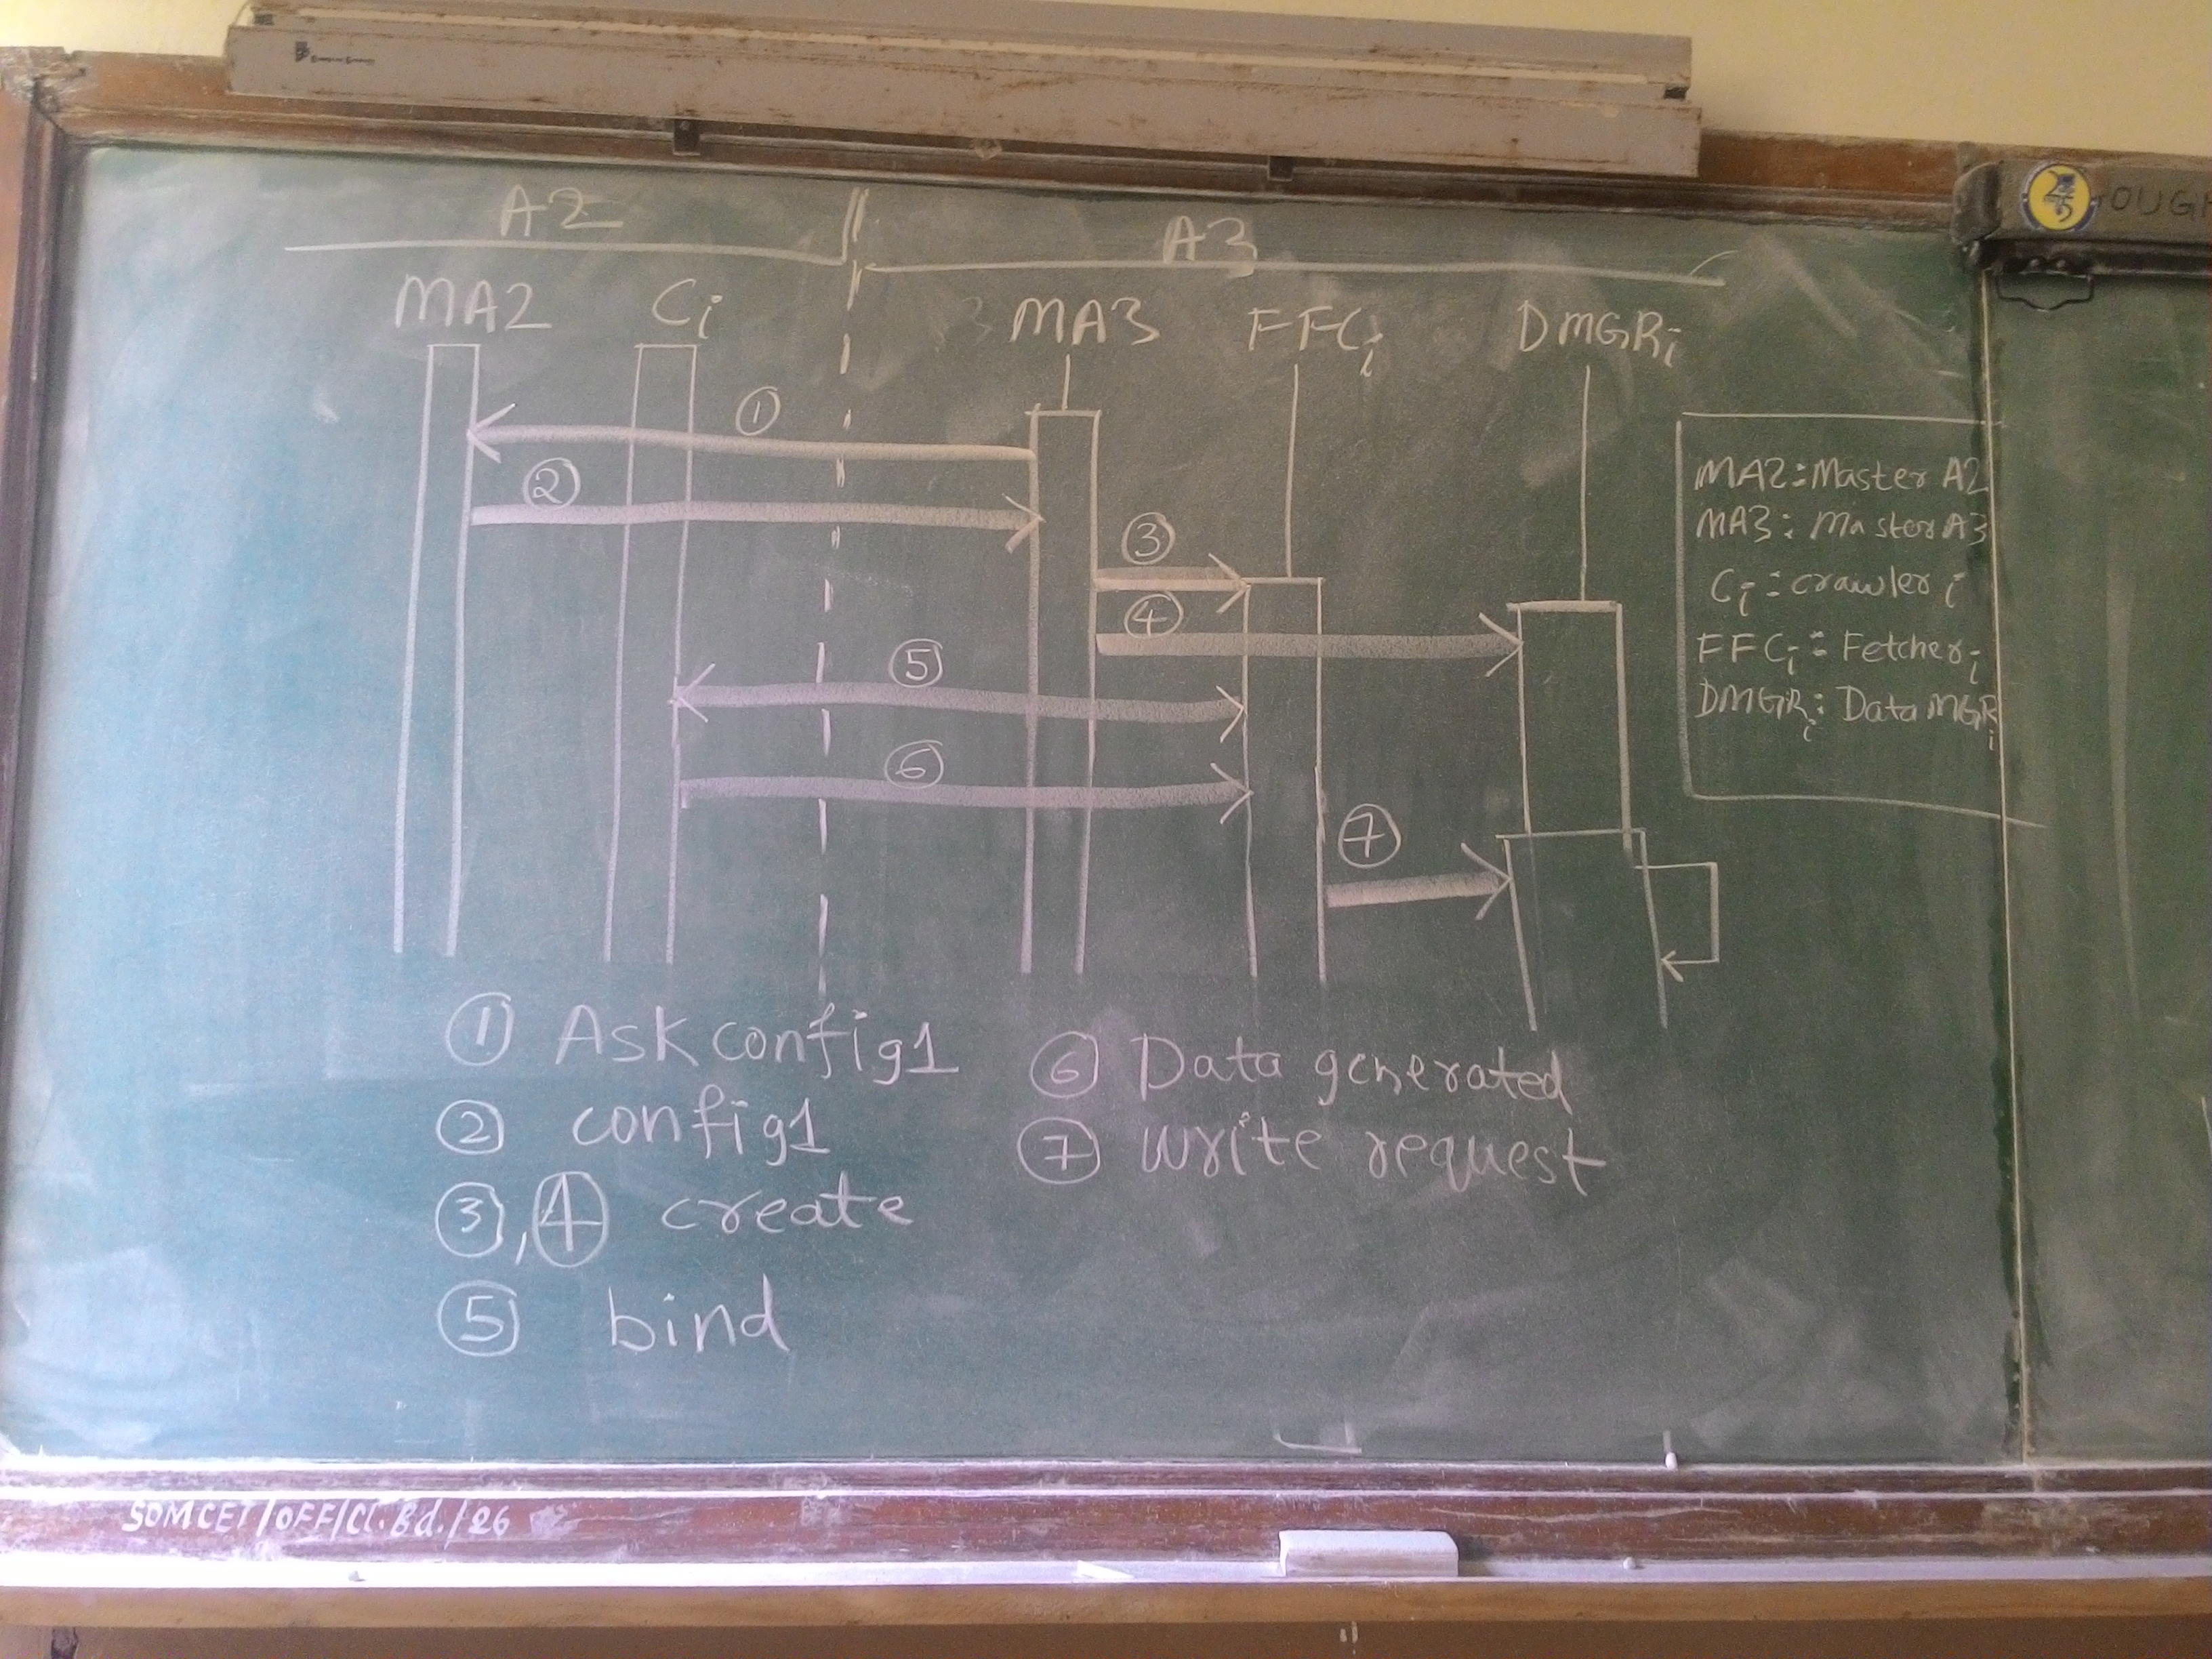 A2
A3
MA2
Ci
MA3
FFCi
DMGRi
①
②
③
④
⑤
⑥
⑦
MA2: Master A2
MA3: Master A3
Ci: crawler i
FFCi: Fetcher i
DMGRi: Data MGRi
① Ask config1
② config1
③,④ create
⑤ bind
⑥ Data generated
⑦ write request
SOMCET/OFF/Cl.Bd./26